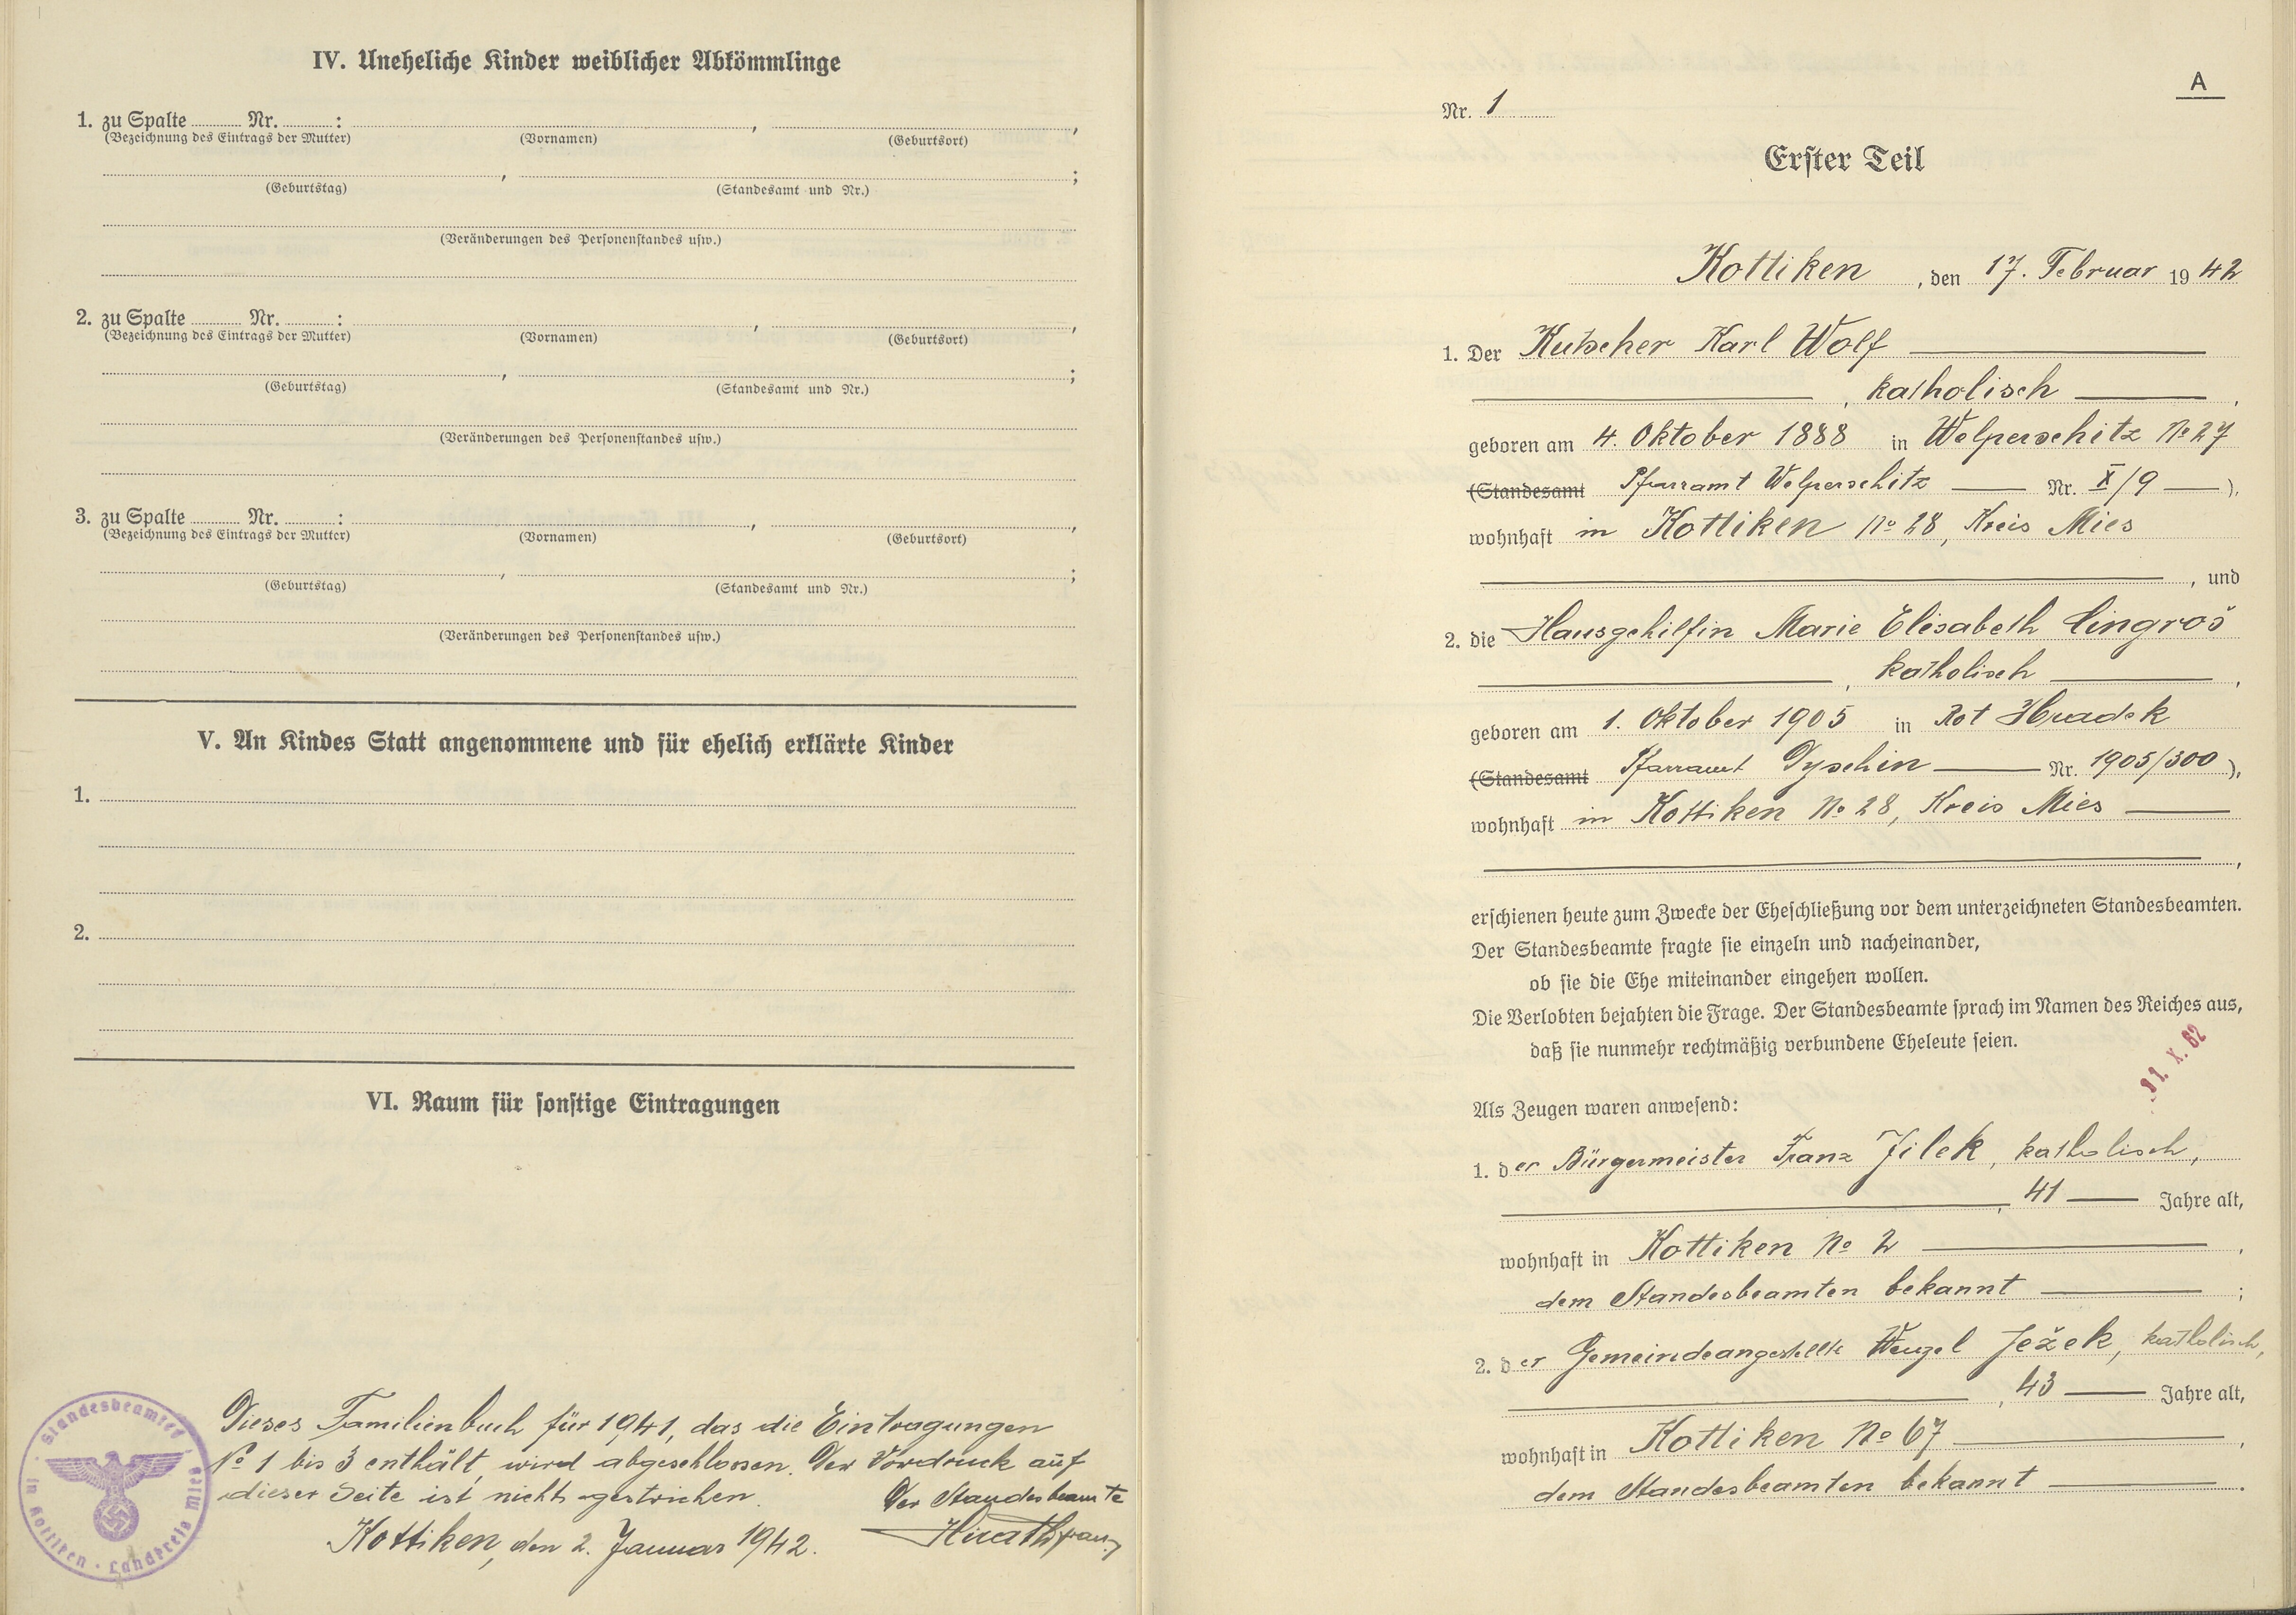 IV. Uneheliche Kinder weiblicher Abkömmlinge
1. zu Spalte Nr. : , ,
(Bezeichnung des Eintrags der Mutter) (Vornamen) (Geburtsort)
, ;
(Geburtstag) (Standesamt und Nr.)
(Veränderungen des Personenstandes usw.)
2. zu Spalte Nr. : , ,
(Bezeichnung des Eintrags der Mutter) (Vornamen) (Geburtsort)
, ;
(Geburtstag) (Standesamt und Nr.)
(Veränderungen des Personenstandes usw.)
3. zu Spalte Nr. : , ,
(Bezeichnung des Eintrags der Mutter) (Vornamen) (Geburtsort)
, ;
(Geburtstag) (Standesamt und Nr.)
(Veränderungen des Personenstandes usw.)
V. An Kindes Statt angenommene und für ehelich erklärte Kinder
1.
2.
VI. Raum für sonstige Eintragungen
Dieses Familienbuch für 1941, das die Eintragungen
No 1 bis 3 enthält, wird abgeschlossen. Der Vordruck auf
dieser Seite ist nicht gestrichen.
Der Standesbeamte
Kottiken, den 2. Januar 1942.
Standesbeamter in Kottiken · Landkreis Mies
A
Nr. 1
Erster Teil
Kottiken, den 17. Februar 1942
1. Der Kutscher Karl Wolf
, katholisch ,
geboren am 4. Oktober 1888 in Welperschitz No 27
(Standesamt Pfarramt Welperschitz Nr. X/9 ),
wohnhaft in Kottiken No 28, Kreis Mies
, und
2. die Hausgehilfin Marie Elisabeth Cingroš
, katholisch ,
geboren am 1. Oktober 1905 in Rot Hradek
(Standesamt Pfarramt Dyschin Nr. 1905/300 ),
wohnhaft in Kottiken No 28, Kreis Mies
,
erschienen heute zum Zwecke der Eheschließung vor dem unterzeichneten Standesbeamten.
Der Standesbeamte fragte sie einzeln und nacheinander,
ob sie die Ehe miteinander eingehen wollen.
Die Verlobten bejahten die Frage. Der Standesbeamte sprach im Namen des Reiches aus,
daß sie nunmehr rechtmäßig verbundene Eheleute seien.
X. 62
Als Zeugen waren anwesend:
1. der Bürgermeister Franz Jilek, katholisch,
, 41 Jahre alt,
wohnhaft in Kottiken No 2 ,
dem Standesbeamten bekannt ;
2. der Gemeindeangestellte Wenzel Ježek, katholisch,
, 43 Jahre alt,
wohnhaft in Kottiken No 67 ,
dem Standesbeamten bekannt .